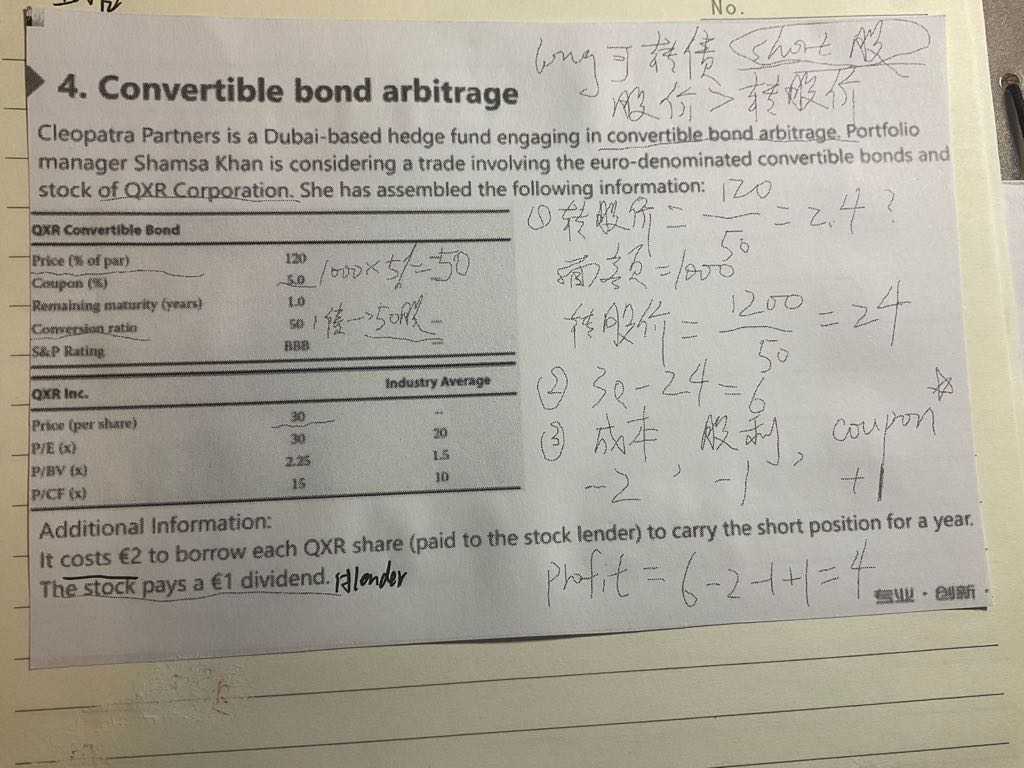 No.
long 可转债 short 股
股价 > 转股价
4. Convertible bond arbitrage
Cleopatra Partners is a Dubai-based hedge fund engaging in convertible bond arbitrage. Portfolio
manager Shamsa Khan is considering a trade involving the euro-denominated convertible bonds and
stock of QXR Corporation. She has assembled the following information:
QXR Convertible Bond
Price (% of par) 120
Coupon (%) 5.0 1000×5%=50
Remaining maturity (years) 1.0
Conversion ratio 50 1债→50股 --
S&P Rating BBB
QXR Inc. Industry Average
Price (per share) 30 --
P/E (x) 30 20
P/BV (x) 2.25 1.5
P/CF (x) 15 10
① 转股价 = 120/50 = 2.4?
面额=1000
转股价 = 1200/50 = 24
② 30-24=6
③ 成本, 股利, coupon ☆
-2, -1 +1
Additional Information:
It costs €2 to borrow each QXR share (paid to the stock lender) to carry the short position for a year.
The stock pays a €1 dividend. 归lender
profit = 6-2-1+1=4